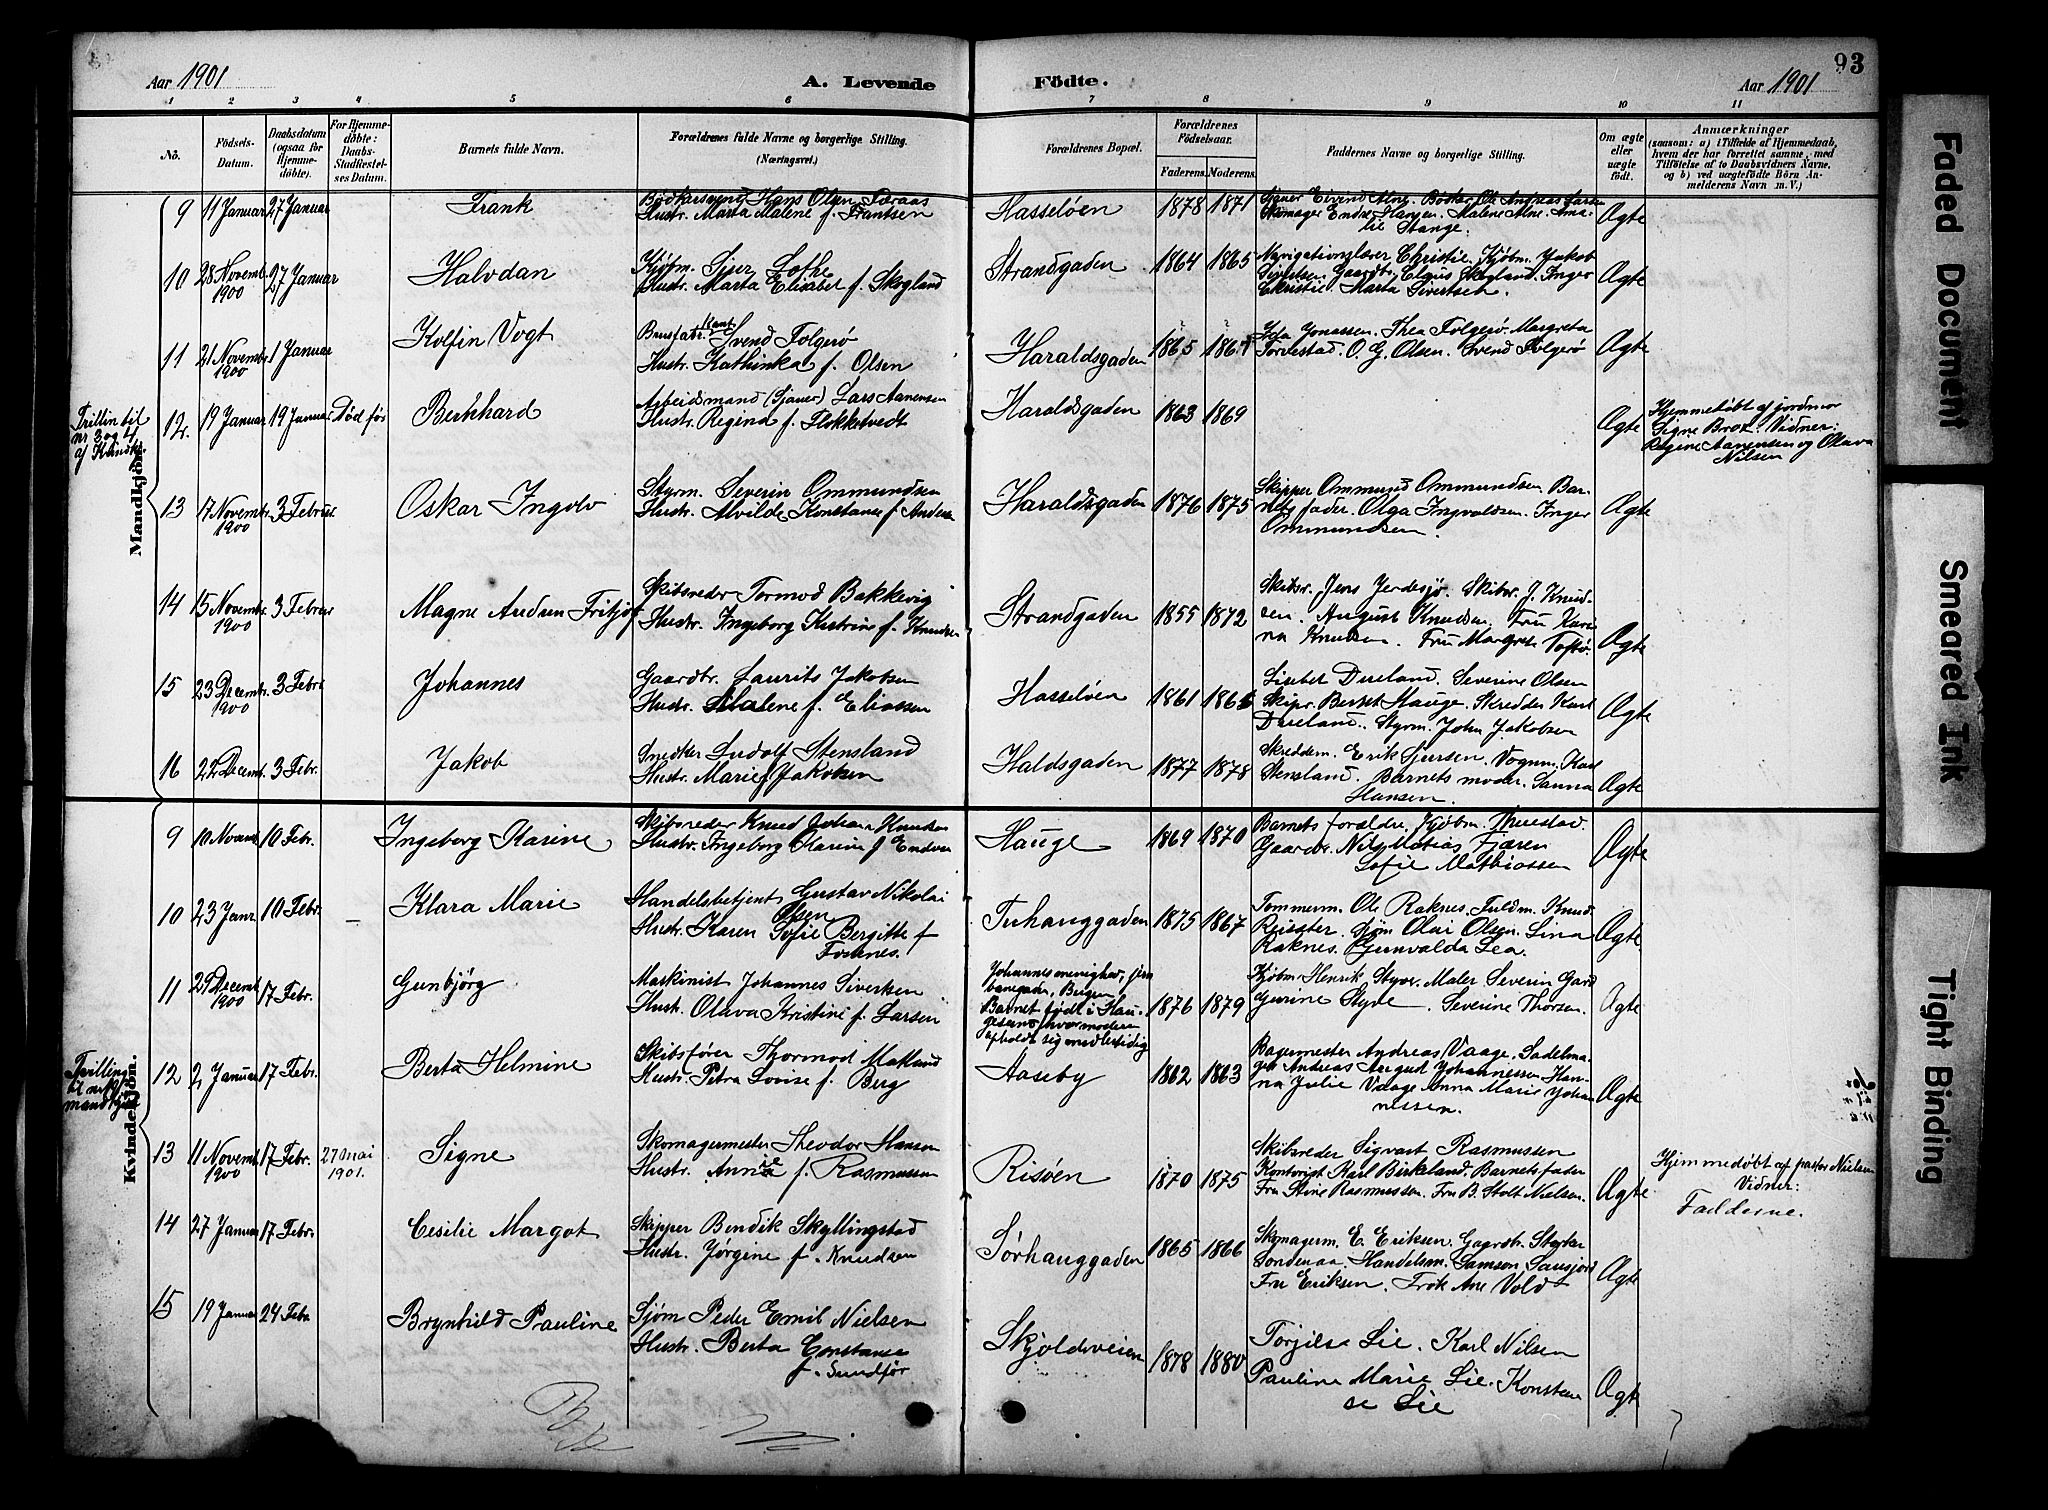 93
Aar 1901 A. Levende Födte. Aar 1901
1 2 3 4 5 6 7 8 9 10 11
No. Födsels-Datum. Daabsdatum (ogsaa for Hjemmedöbte). For Hjemmedöbte: Daabs-Stadfæstelses Datum. Barnets fulde Navn. Forældrenes fulde Navne og borgerlige Stilling. (Næringsvei.) Forældrenes Bopæl. Forældrenes Födselsaar. Faderens. Moderens. Faddernes Navne og borgerlige Stilling. Om ægte eller uægte födt. Anmærkninger
(saasom: a) i Tilfælde af Hjemmedaab,
hvem der har forrettet samme, med
Tilföielse af to Daabsvidners Navne,
og b) ved uægtefödte Börn An-
melderens Navn m. V.)
Mandkjön.
9 11 Januar 27 Januar Frank Bødkersvend Hans Olsen Færaas
Hustr. Marta Malene f. Frantsen
Hasseløen 1878 1871 Eivind Alne. Bødker Ole Andreas Larsen
Skomager Endre Hansen. Malene Alne. Ama-
lie Stange.
Ægte
10 28 Novemb. 1900 27 Januar Halvdan Kjøbm. Sjur Lothe
Hustr. Marta Elisabet f. Skogland
Strandgaden 1864 1865 Navigationslærer Christie. Kjøbm. Jakob
Sivertsen. Gaardbr. Claus Skogland. Inger
Christie. Marta Sivertsen.
Ægte
11 21 Novembr. 1900 1 Januar Kolfin Vogt Brusfabrikant Svend Folgerø
Hustr. Kathinka f. Olsen
Haraldsgaden 1865 1867 Ida Jonassen. Thea Folgerø. Margreta
Torvestad. O. G. Olsen. Svend Folgerø
Ægte
Trilling til
nr 3 og 4
af Kvindk.
12. 19 Januar 19 Januar Død før Bernhard Arbeidsmand (Sjauer) Lars Aanensen
Hustr. Regina f. Flokketvedt
Haraldsgaden 1863 1869 Ægte
Hjemmedøbt af jordmor
Signe Brox. Vidner:
Regine Aanensen og Olava
Nilsen
13 17 Novembr. 1900 3 Februar Oskar Ingolv Styrm. Severin Ommundsen
Hustr. Alvilde Konstanse f. Andersen
Haraldsgaden 1876 1875 Skipper Ommund Ommundsen. Bar-
nets fader. Olga Ingvaldsen. Inger
Ommundsen.
Ægte
14 15 Novembr. 1900 3 Februar Magne Audun Fritjof Skibsreder Tormod Bakkevig
Hustr. Ingeborg Katrine f. Knudsen
Strandgaden 1855 1872 Skibsr. Jens Jerdesjø. Skibsr. J. Knud-
sen. August Knudsen. Fru Kari-
na Knudsen. Fru Margrete Toftø.
Ægte
15 23 Decembr. 1900 3 Febr. Johannes Gaardbr. Laurits Jakobsen
Hustr. Malene f. Eliassen
Hasseløen 1861 1866 Lisebet Dueland. Severine Olsen
Skipr. Bertel Hauge. Skredder Karl
Dueland. Styrm. John Jakobsen
Ægte
16 22 Decemb. 3 Febr. Jakob Snedker Ludolf Stensland
Hustr. Marie f. Jakobsen
Haldsgaden 1877 1878 Skredderm. Erik Sjursen. Vognm. Karl
Stensland. Barnets moder. Sanna
Hansen.
Ægte
Kvindekjön.
9 10 Novemb. 10 Febr. Ingeborg Karine Skibsreder Knud Johan Knudsen
Hustr. Ingeborg Karine f. Endresen
Hauge 1869 1870 Barnets forældre. Kjøbm. Thuestad.
Gaardbr. Nils Matias Fjæren
Sofie Mathiassen
Ægte
10 23 Janr. 10 Febr. – Klara Marie Handelsbetjent Gustav Nikolai
Olsen
Hustr. Karen Sofie Bergitte f
Fosnes.
Tuhauggaden 1875 1867 Tømmerm. Ole Raknes. Fuldm. Knud
Reiester. Sjøm Olai Olsen. Lina
Raknes. Gunvalda Lea.
Ægte
11 29 Decemb. 1900 17 Febr. Gunbjørg Maskinist Johannes Sivertsen
Hustr. Olava Kristine f. Larsen
Johannes menighed, jern
banegaden, Bergen
Barnet født i Hau-
gesund, hvor moderen
opholdt sig midlertidig
1876 1879 Kjøbm Henrik Styve. Maler Severin Gard
Gurine Styve. Severine Thorsen.
Ægte
Tvilling
til nr 19
mandkjøn
12 2 Januar 17 Febr. Berta Helmine Skibsfører Thormod Matland
Hustr. Petra Lovise f. Berg
Aaseby 1862 1863 Bagermester Andreas Vaage. Sadelma-
ger Andreas August Johannessen. Han-
na Julie Vaage. Anna Marie Johan-
nessen.
Ægte
13 11 Novemb. 1900 17 Febr. 27 mai 1901. Signe Skomagermester Theodor Hansen
Hustr. Annie f. Rasmussen
Risøen 1870 1875 Skibsreder Sigvart Rasmussen
Kontorist Karl Birkland. Barnets fader
Fru Stine Rasmussen. Fru B. Stolt Nielsen.
Ægte
Hjemmedøbt af pastor Nielsen
Vidner:
Fadderne.
14 27 Januar 17 Febr. Cesilie Margot Skipper Bendik Skyllingstad
Hustr. Jørgene f. Knudsen
Sørhauggaden 1865 1866 Skomagerm. E. Eriksen. Gaardbr. Styrker
Søndenaa. Handelsm. Samson Sausjord
Fru Eriksen. Frøk Ane Vold
Ægte
15 19 Januar 24 Febr. Brynhild Pauline Sjøm Peder Emil Nielsen
Hustr. Berta Constanse
f. Sundfør
Skjoldaveien 1878 1880 Torjilsa Lie. Karl Nilsen
Pauline Marie Lie. Konstan
se Lie
Ægte
Faded Document
Smeared Ink
Tight Binding